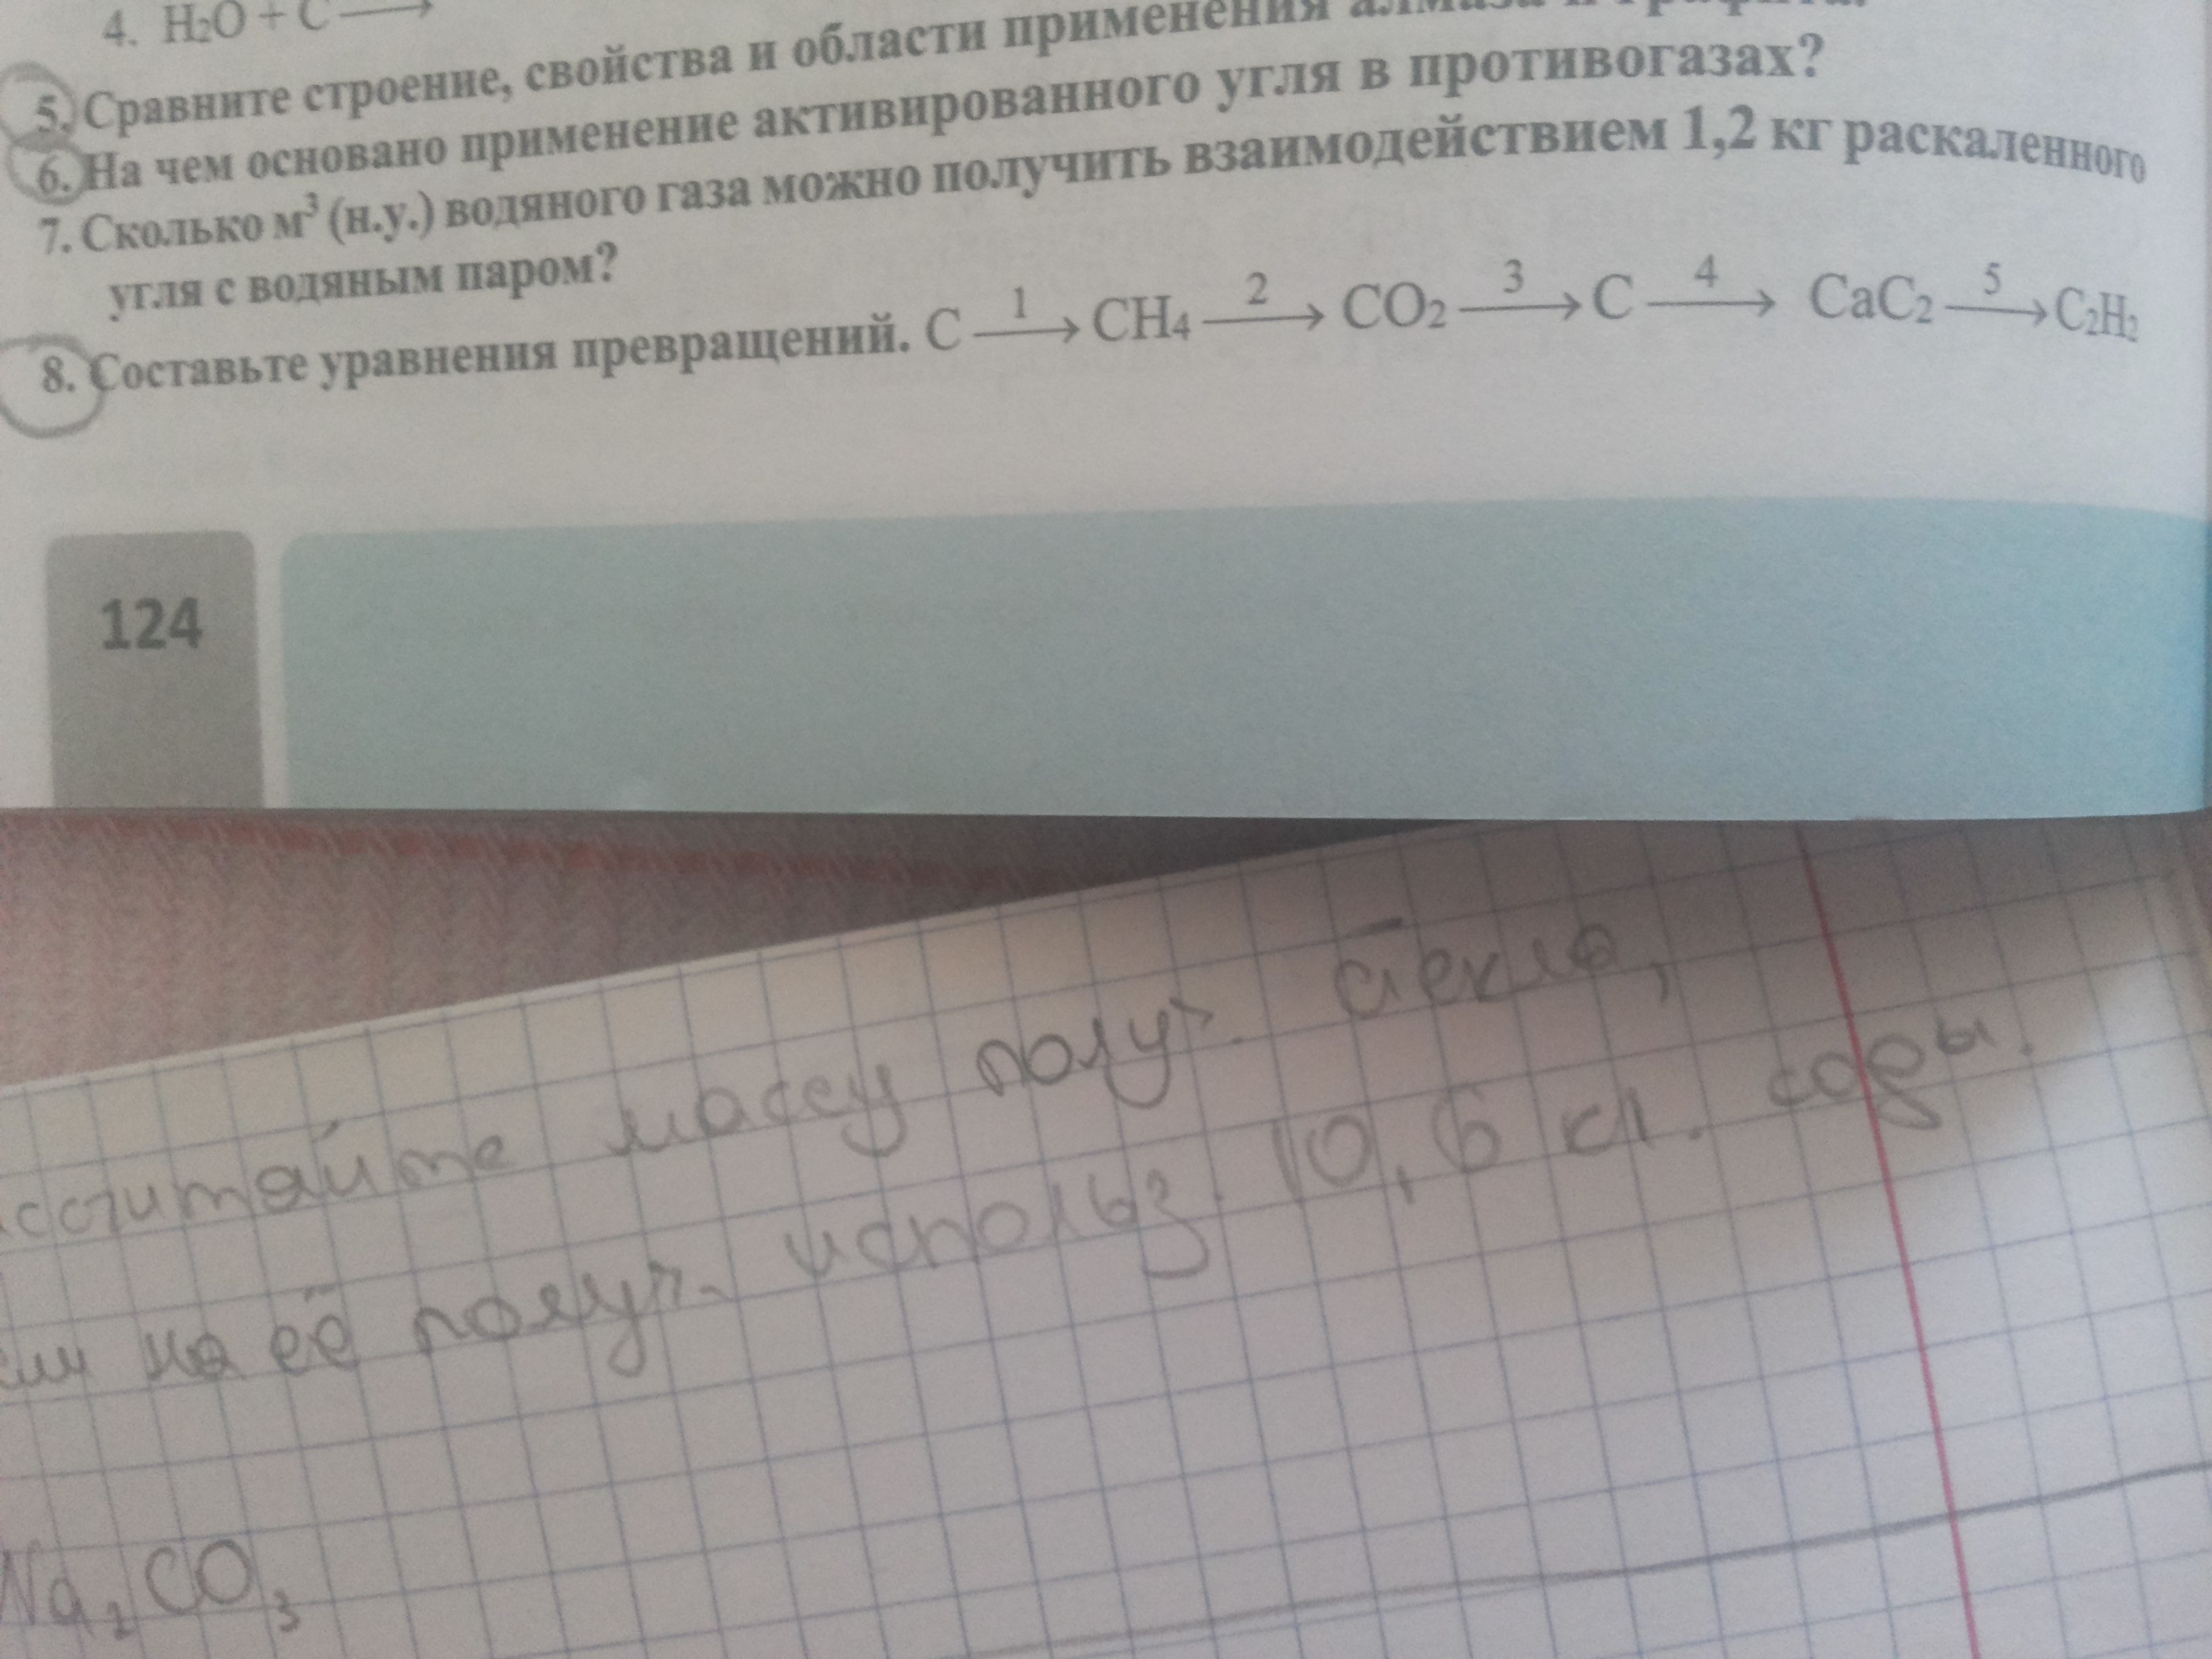 4. H₂O + C ⟶
5. Сравните строение, свойства и области применения алмаза и графита.
6. На чем основано применение активированного угля в противогазах?
7. Сколько м³ (н.у.) водяного газа можно получить взаимодействием 1,2 кг раскаленного
угля с водяным паром?
8. Составьте уравнения превращений. C —1→ CH₄ —2→ CO₂ —3→ C —4→ CaC₂ —5→ C₂H₂
124
ссчитайте массу получ. стекла,
на её получ. использ. 10,6 соды.
Na₂CO₃